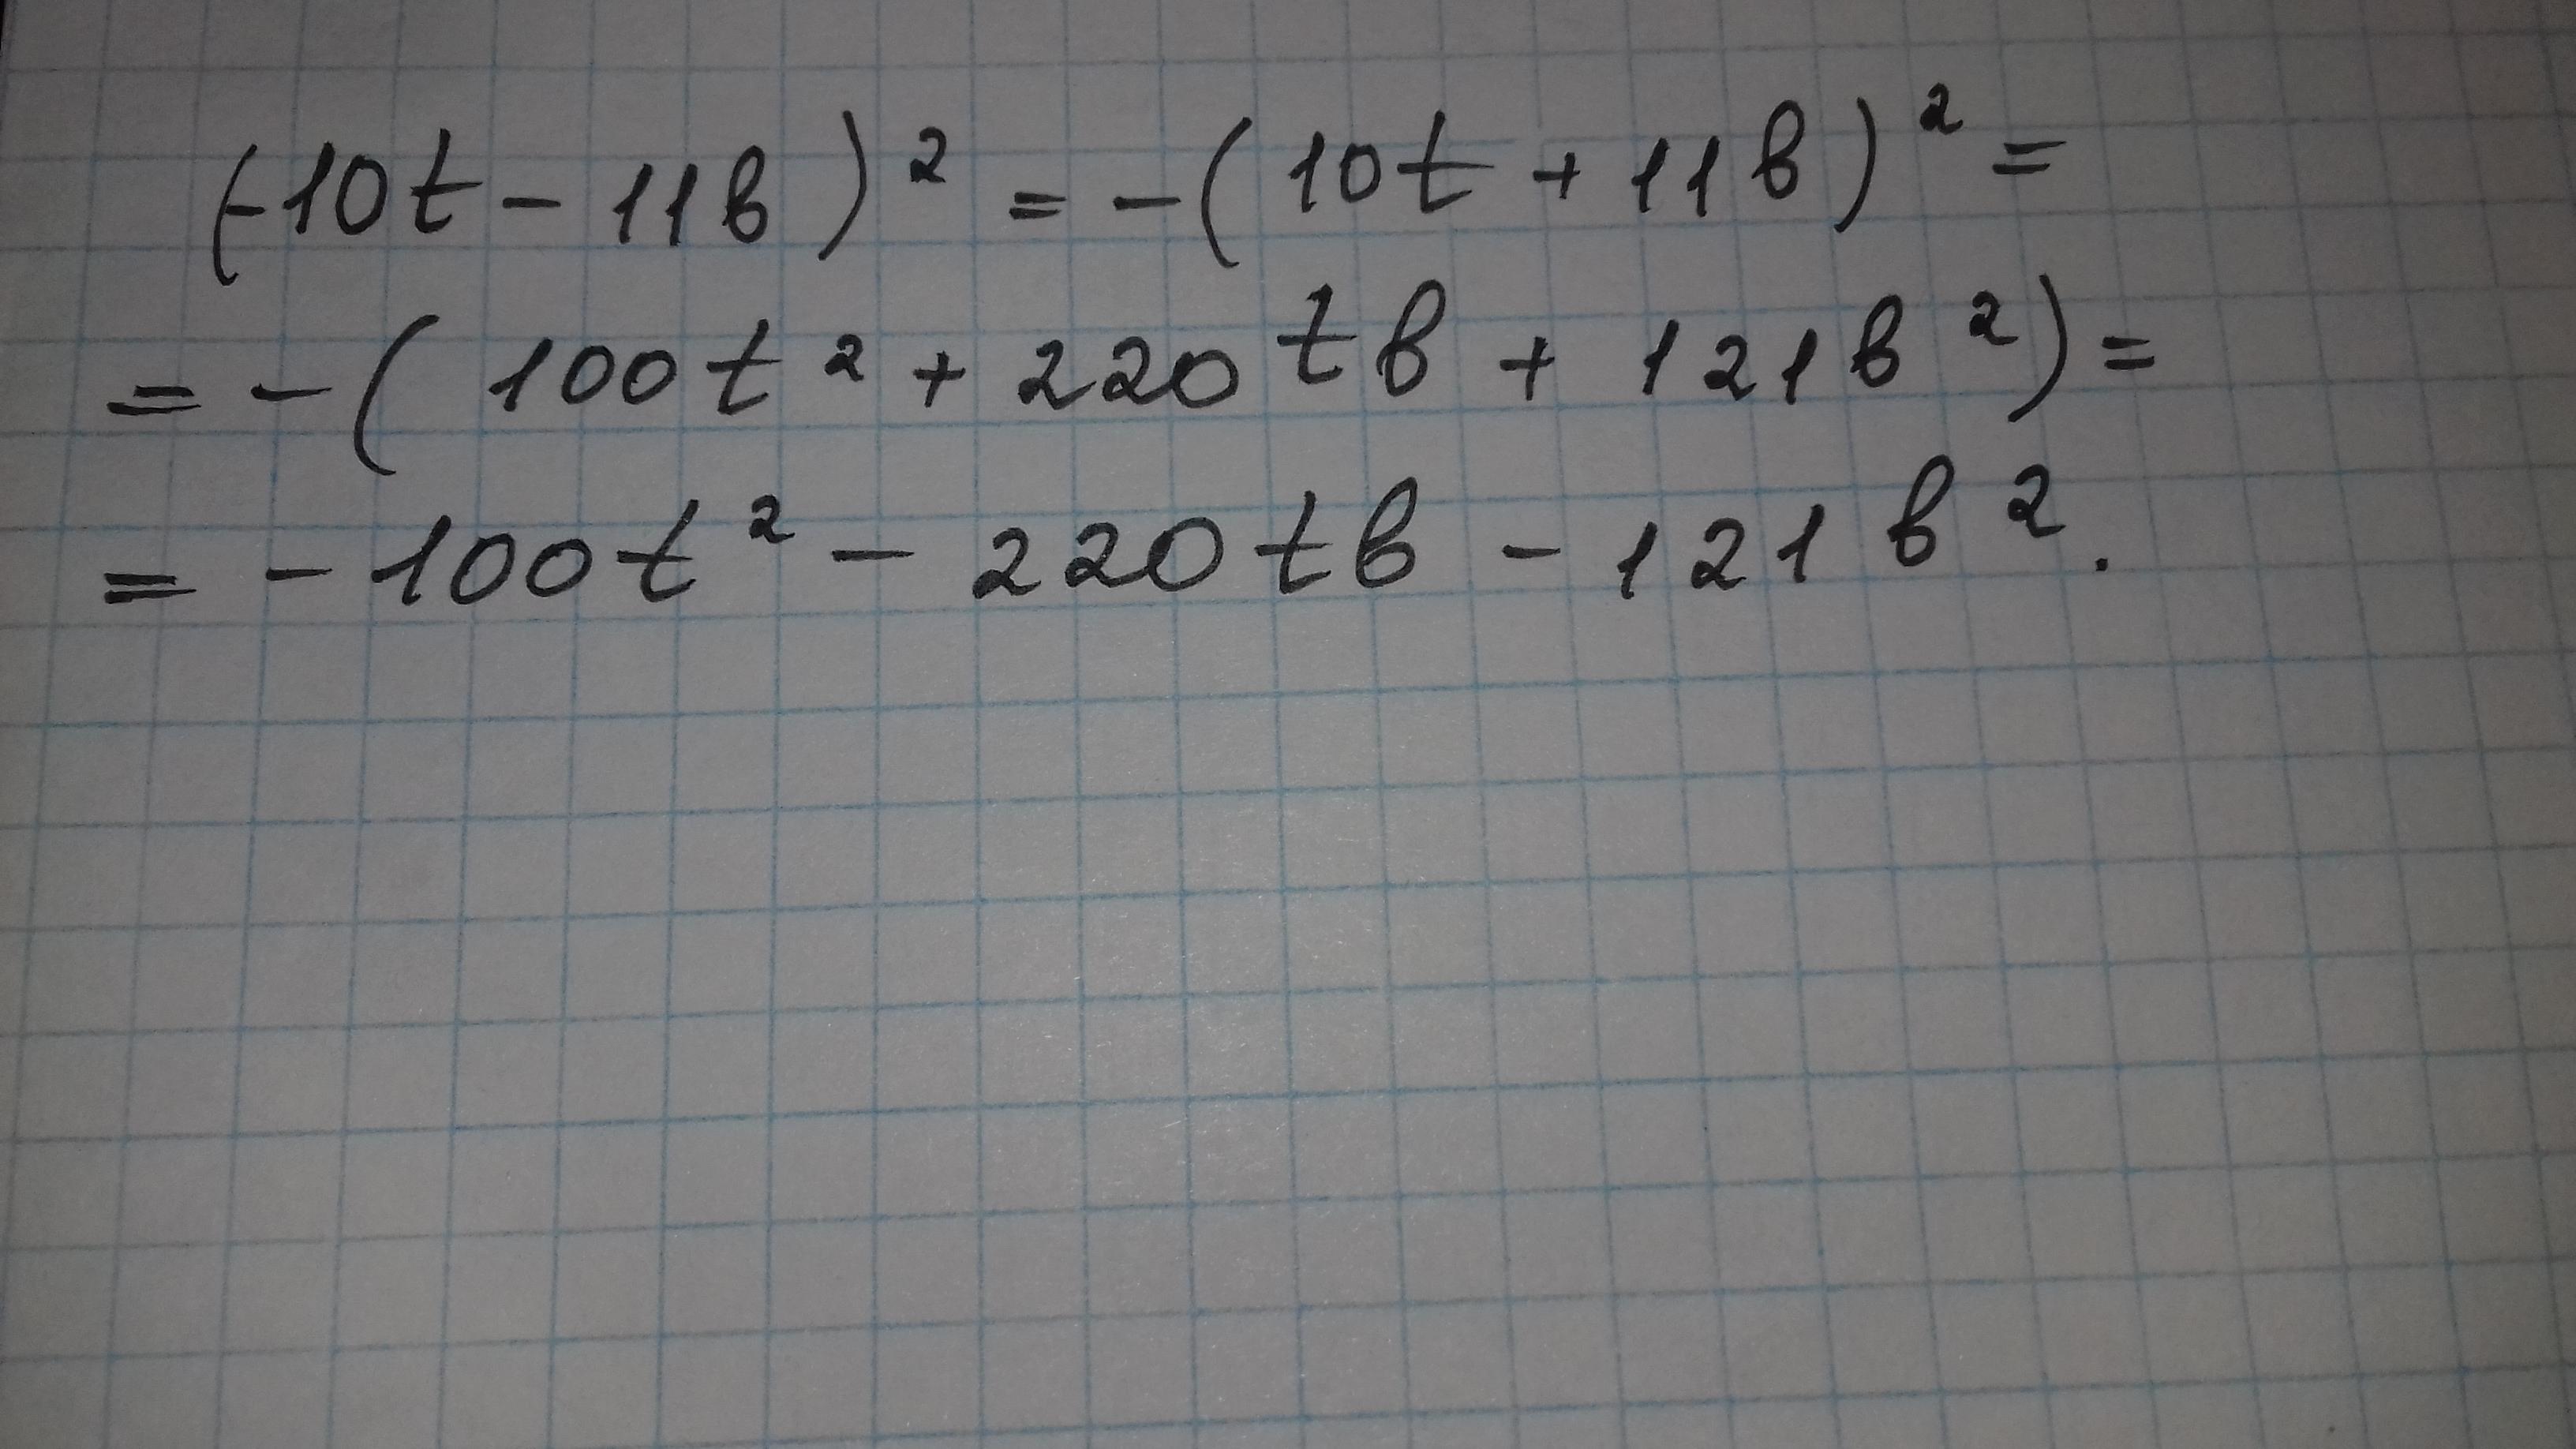 (-10t - 11в)² = -(10t + 11в)² =
= -(100t² + 220tв + 121в²) =
= -100t² - 220tв - 121в².